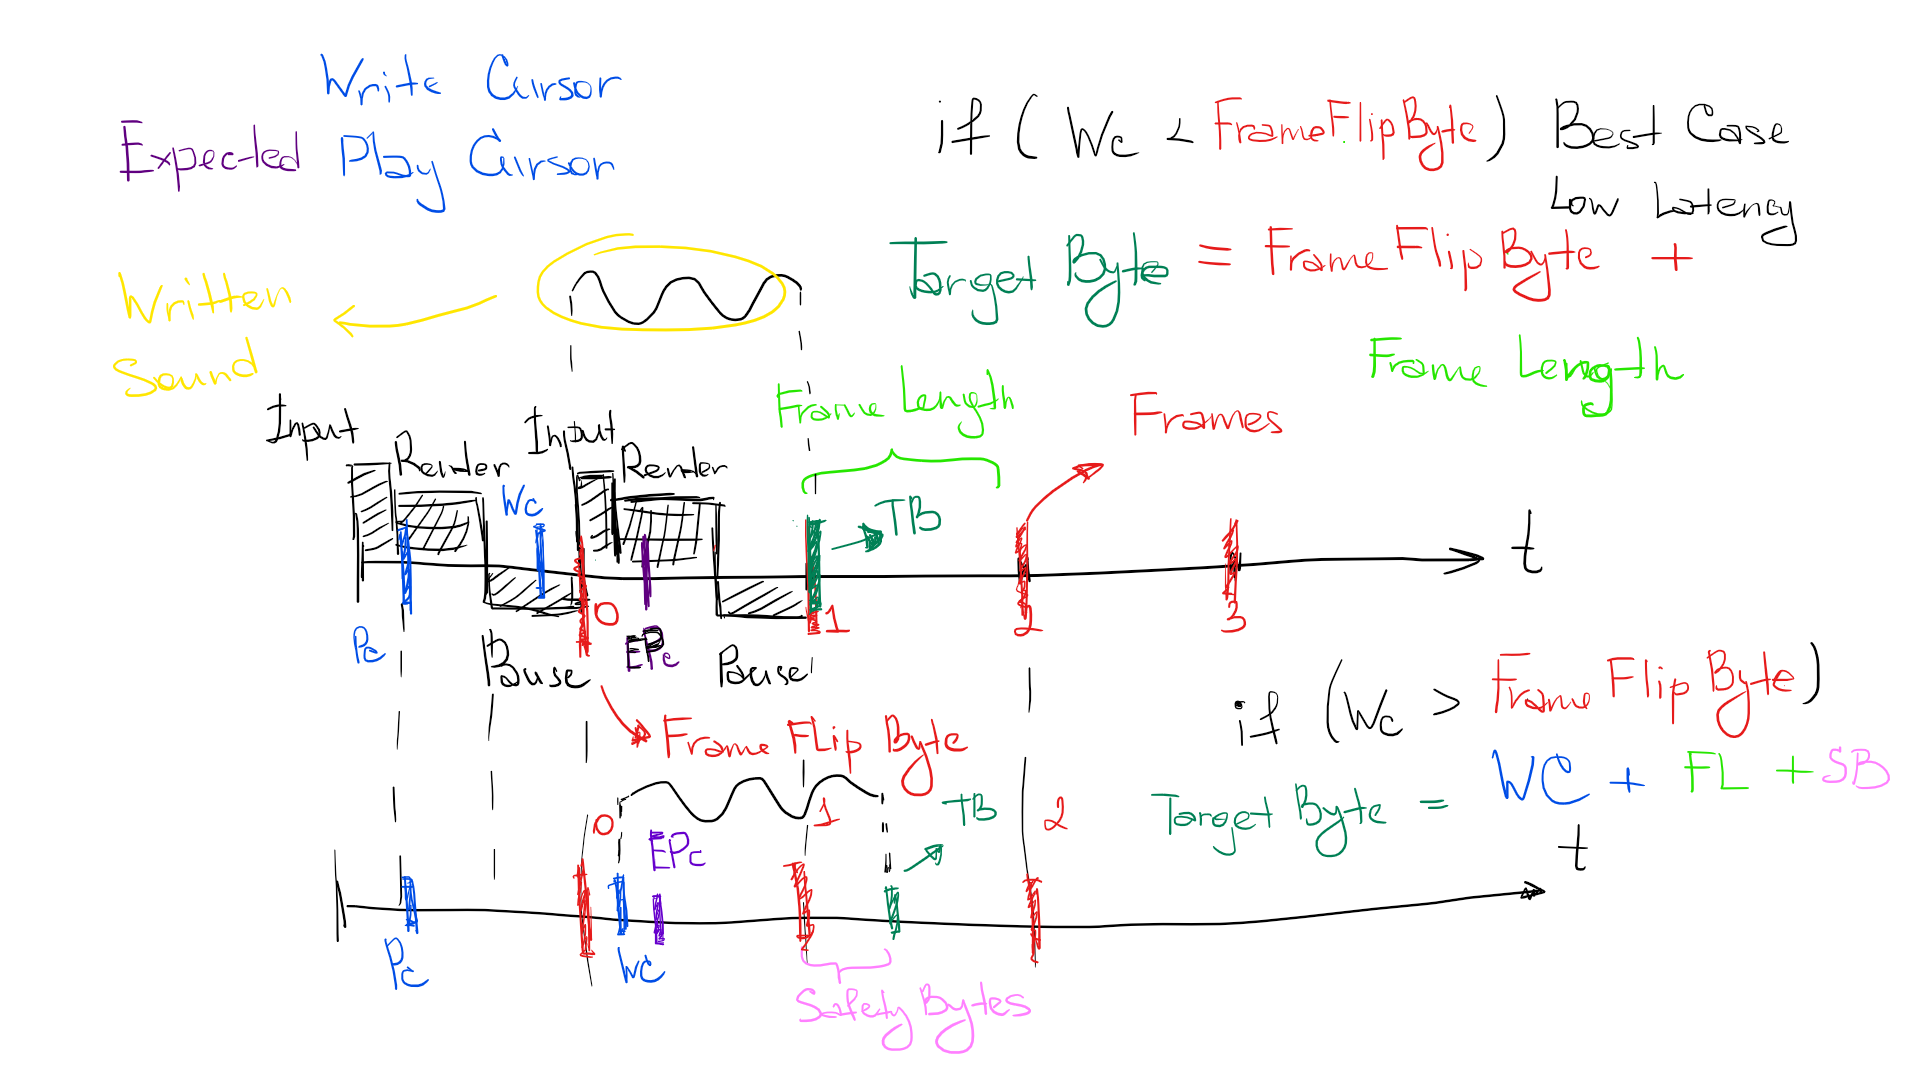 Write Cursor
Expected Play Cursor
if ( Wc < FrameFlipByte) Best Case
Low Latency
Target Byte = Frame Flip Byte +
Frame Length
Written
Sound
Frame Length
Frames
Input
Render
Input
Render
Wc
TB
t
Pc
Pause
0
EPc
Pause
1
2
3
Frame FLip Byte
if (Wc > Frame Flip Byte)
Target Byte = WC + FL + SB
0
1
TB
2
EPc
t
Pc
WC
Safety Bytes